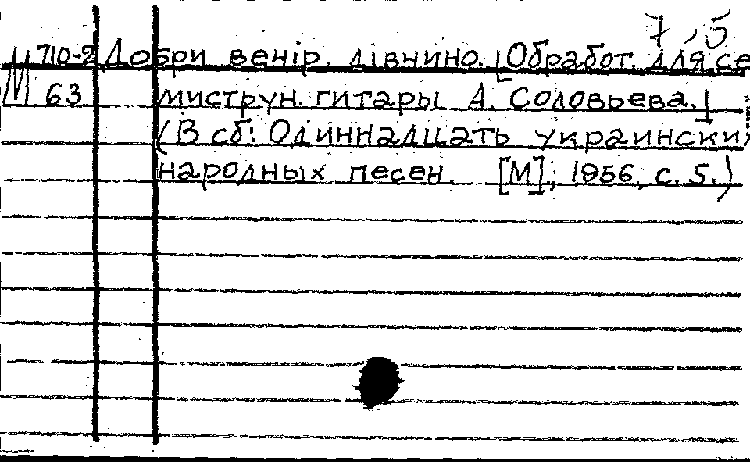 7,5
710-2 Добри венiр. дiвчино. [Обработ. для се
М 63 миструн. гитары А. Соловьева.]
(В сб: Одиннадцать украински
народных песен. [М], 1956, с. 5.)